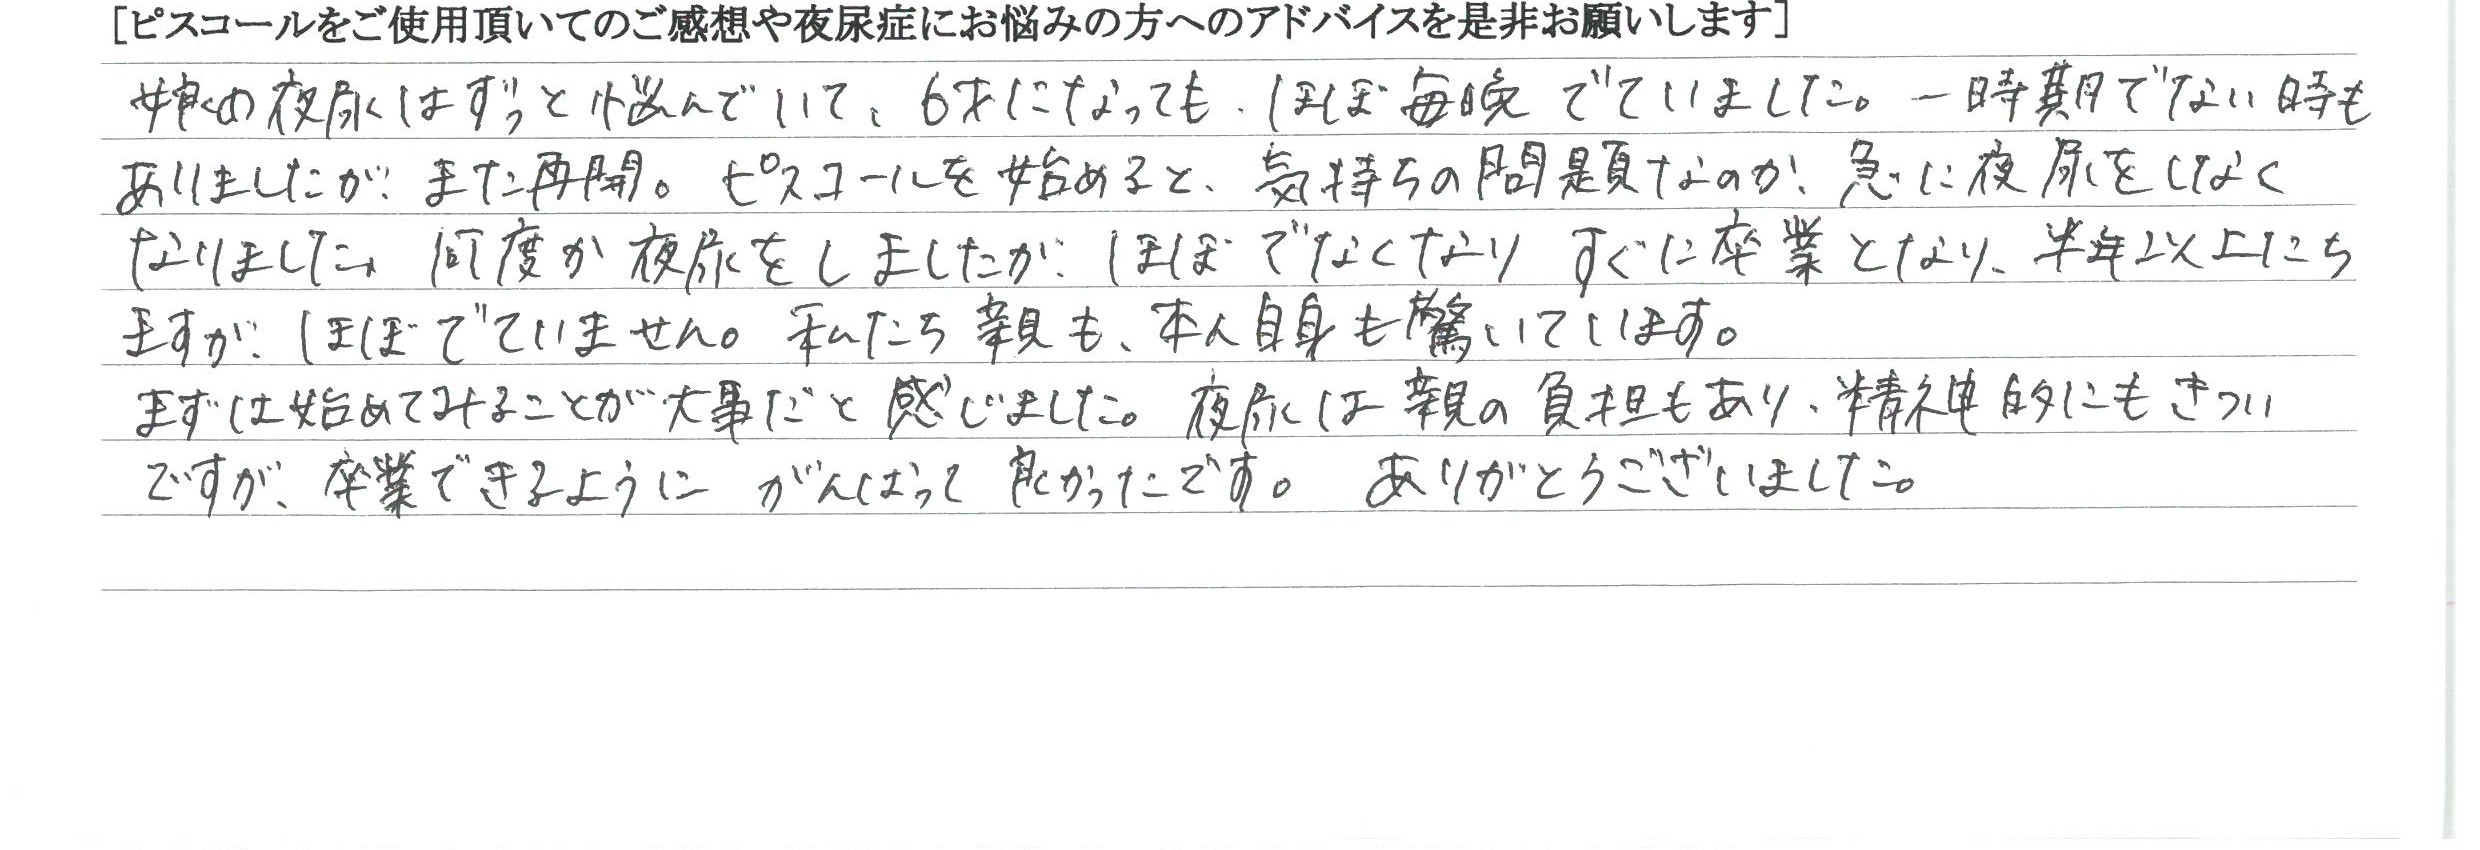 [ピスコールをご使用頂いてのご感想や夜尿症にお悩みの方へのアドバイスを是非お願いします]
娘の夜尿はずっと悩んでいて、6才になっても、ほぼ毎晩でていました。一時期でない時も
ありましたが、また再開。ピスコールを始めると、気持ちの問題なのか、急に夜尿をしなく
なりました。何度か夜尿をしましたが、ほぼでなくなり すぐに卒業となり、半年以上たち
ますが、ほぼでていません。私たち親も、本人自身も驚いています。
まずは始めてみることが大事だと感じました。夜尿は親の負担もあり、精神的にもきつい
ですが、卒業できるように がんばって良かったです。 ありがとうございました。